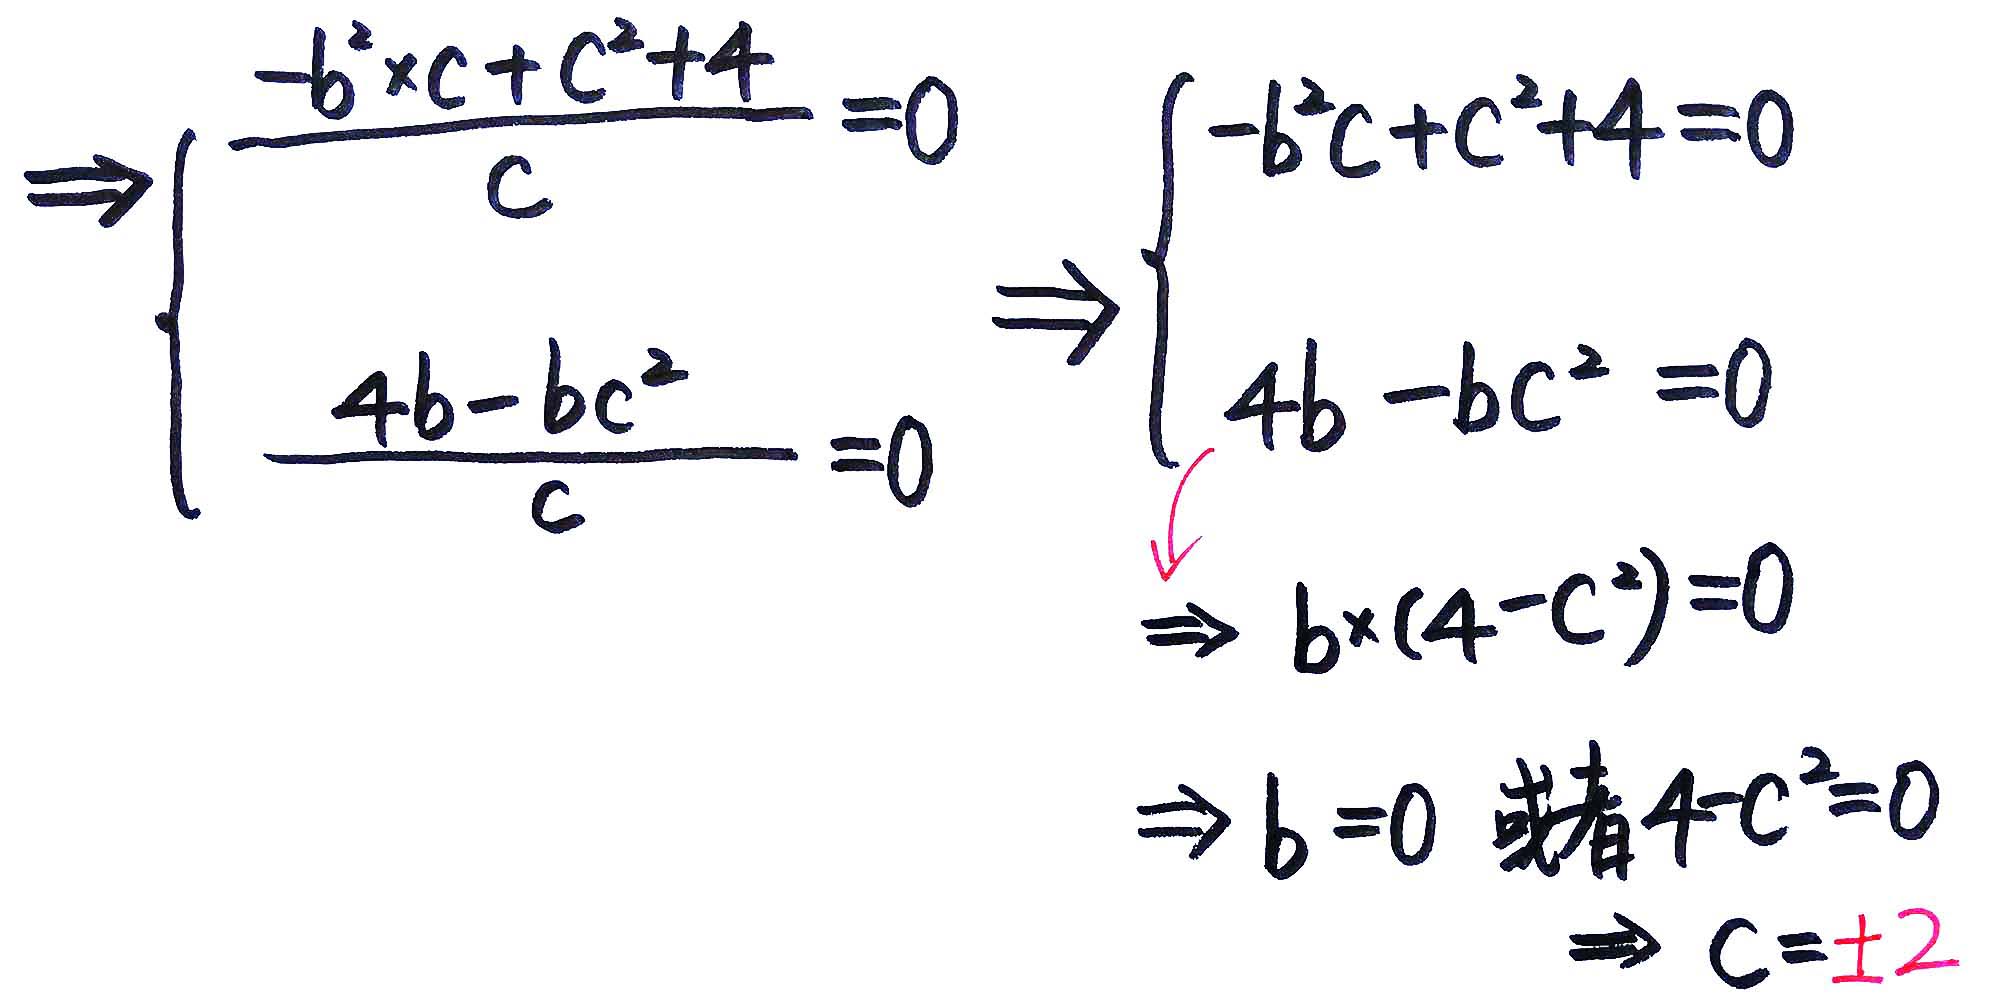 ⇒ { (-b²×c+c²+4)/c =0
(4b-bc²)/c =0
⇒ { -b²c+c²+4=0
4b-bc²=0
⇒ b×(4-c²)=0
⇒ b=0 或者 4-c²=0
⇒ c=±2